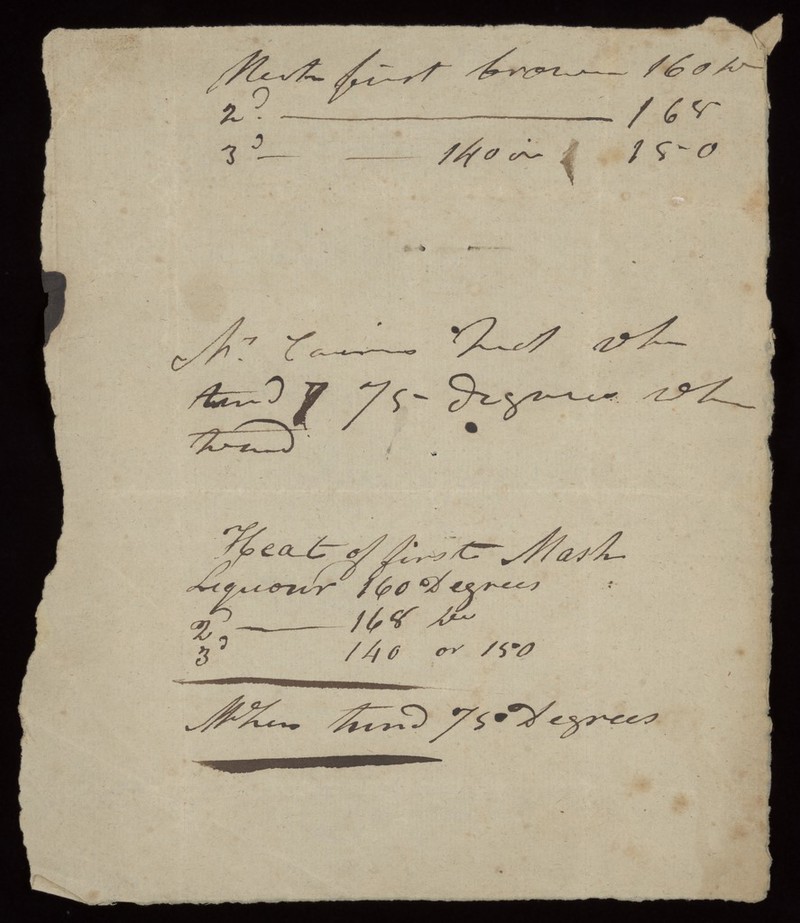 Mash first brown 160
2d. 168
3d 140 or 150
Mr. Cairns
tund 75 degrees
tund
Heat of first Mash
Liquour 160 Degrees
2d 168 Do
3d 140 or 150
When tund 75 Degrees